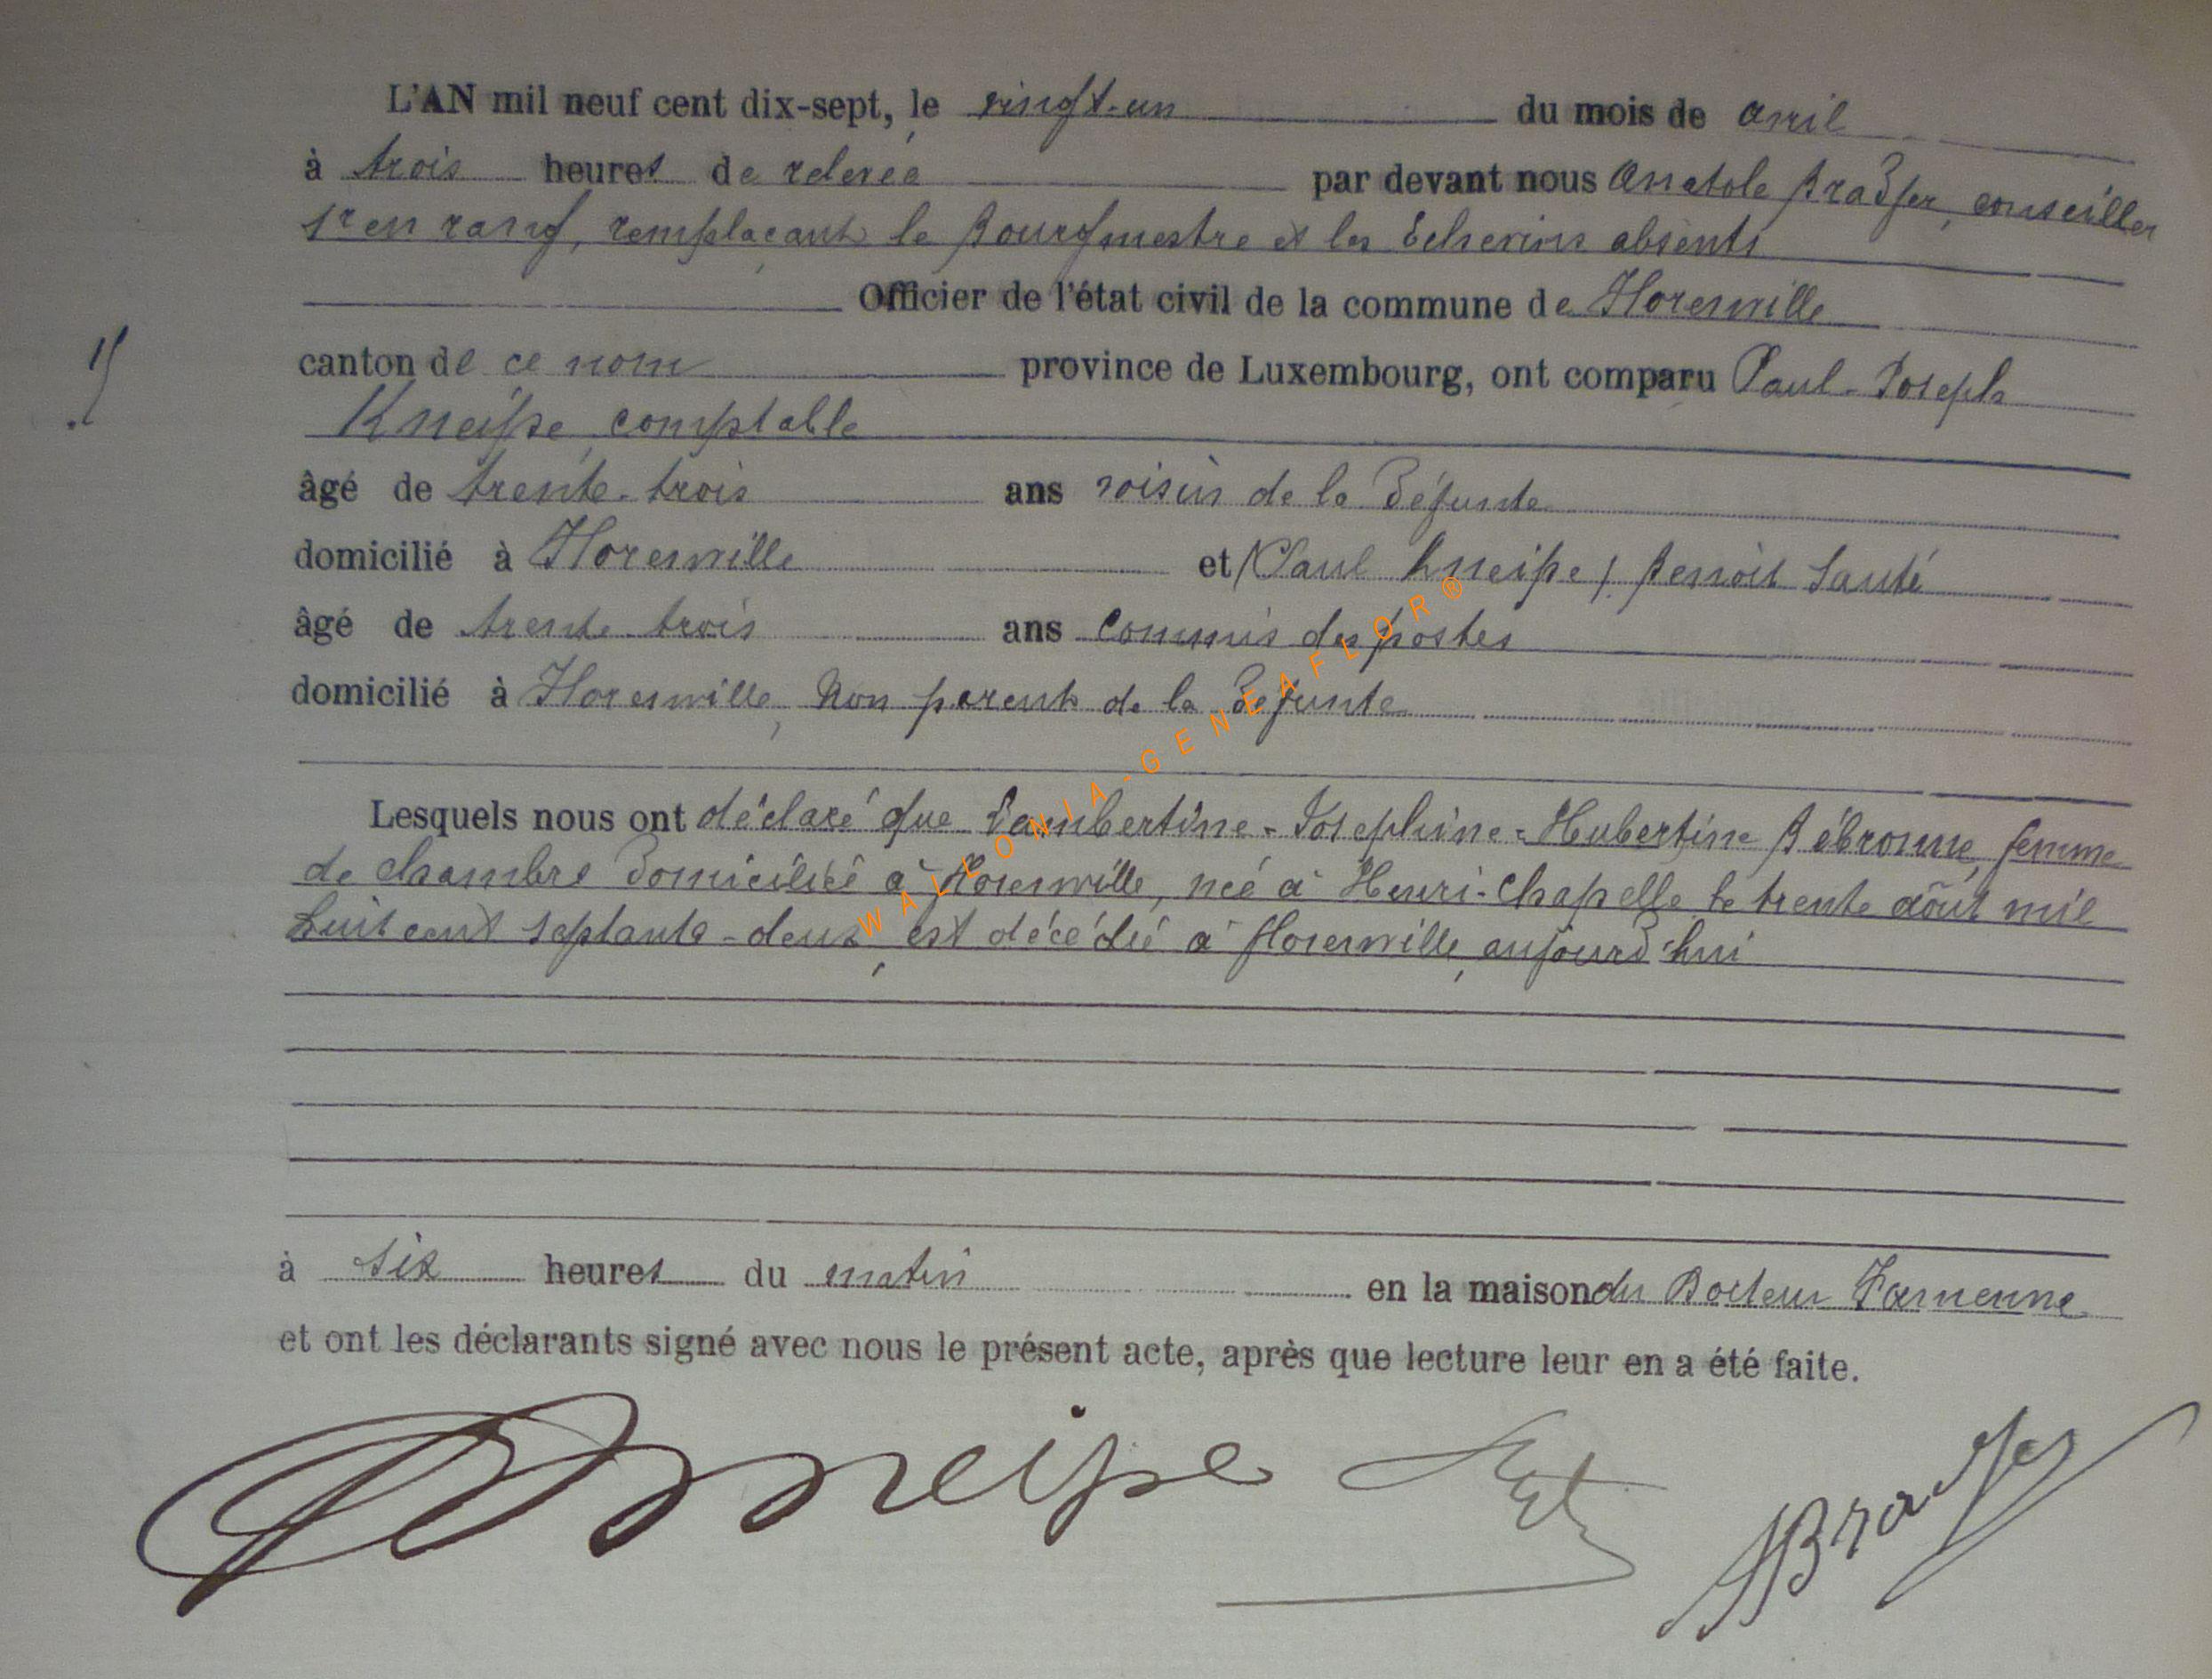 L'AN mil neuf cent dix-sept, le vingt-un du mois de avril
à trois heures de relevée par devant nous Anatole Bradfer, conseiller
1er en rang, remplaçant le Bourgmestre et les Echevins absents
Officier de l'état civil de la commune de Florenville
canton de ce nom province de Luxembourg, ont comparu Paul-Joseph
Kneipe, comptable
âgé de trente-trois ans voisin de la défunte
domicilié à Florenville et (Paul Kneipe) Benoit Santé
âgé de trente-trois ans commis des postes
domicilié à Florenville, Non parent de la défunte
Lesquels nous ont déclaré que Lambertine-Joséphine-Hubertine Bébronne, femme
de chambre domiciliée à Florenville, née à Henri-Chapelle le trente août mil
huit cent septante-deux, est décédée à Florenville, aujourd'hui
à six heures du matin en la maison du Docteur Famenne
et ont les déclarants signé avec nous le présent acte, après que lecture leur en a été faite.
Kneipe ABradfer
WALLONIA-GENEAFLOR®